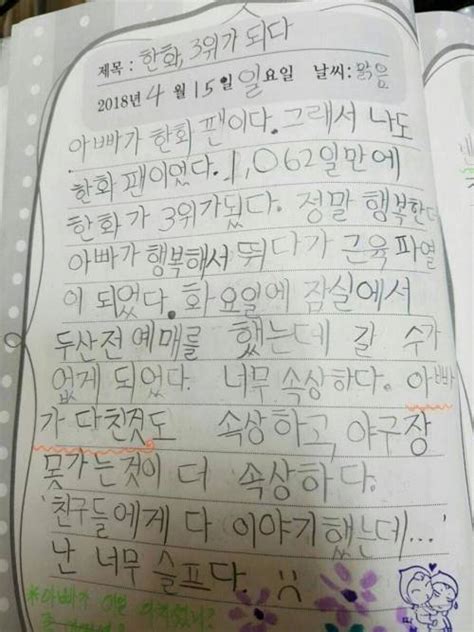 제목: 한화, 3위가 되다
2018년 4월 15일 일요일 날씨: 맑음
아빠가 한화 팬이다. 그래서 나도
한화 팬이었다. 1,062일만에
한화가 3위가됬다. 정말 행복한더
아빠가 행복해서 뛰다가 근육파열
이 되었다. 화요일에 잠실에서
두산전 예매를 했는데 갈 수가
없게 되었다. 너무 속상하다. 아빠
가 다친것도 속상하고, 야구장
못가는것이 더 속상하다.
'친구들에게 다 이야기했는데...'
난 너무 슬프다.
*아빠가